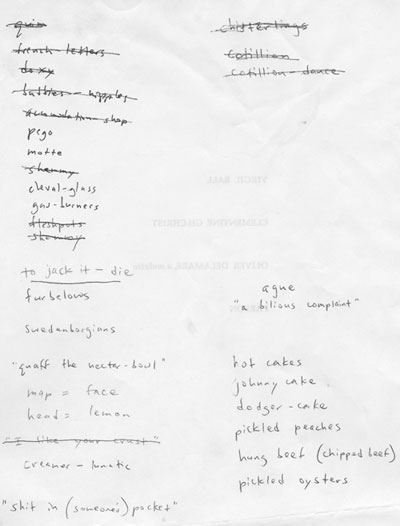 quim
french-letters
doxy
bubbies - nipples
shop
pego
motte
cheval-glass
gas-burners
fleshpots
to jack it - die
furbelows
Swedenborgians
"quaff the nectar-bowl"
map = face
head = lemon
"I like your crust"
creamer - lunatic
"shit in (someone's) pocket"
chitterlings
cotillian
cotillion - dance
VIRGIL BALL
CLEMENTINE GILCHRIST
OLIVER DELAMARE, a mulatto
ague
"a bilious complaint"
hot cakes
johnny cake
dodger-cake
pickled peeches
hung beef (chipped beef)
pickled oysters